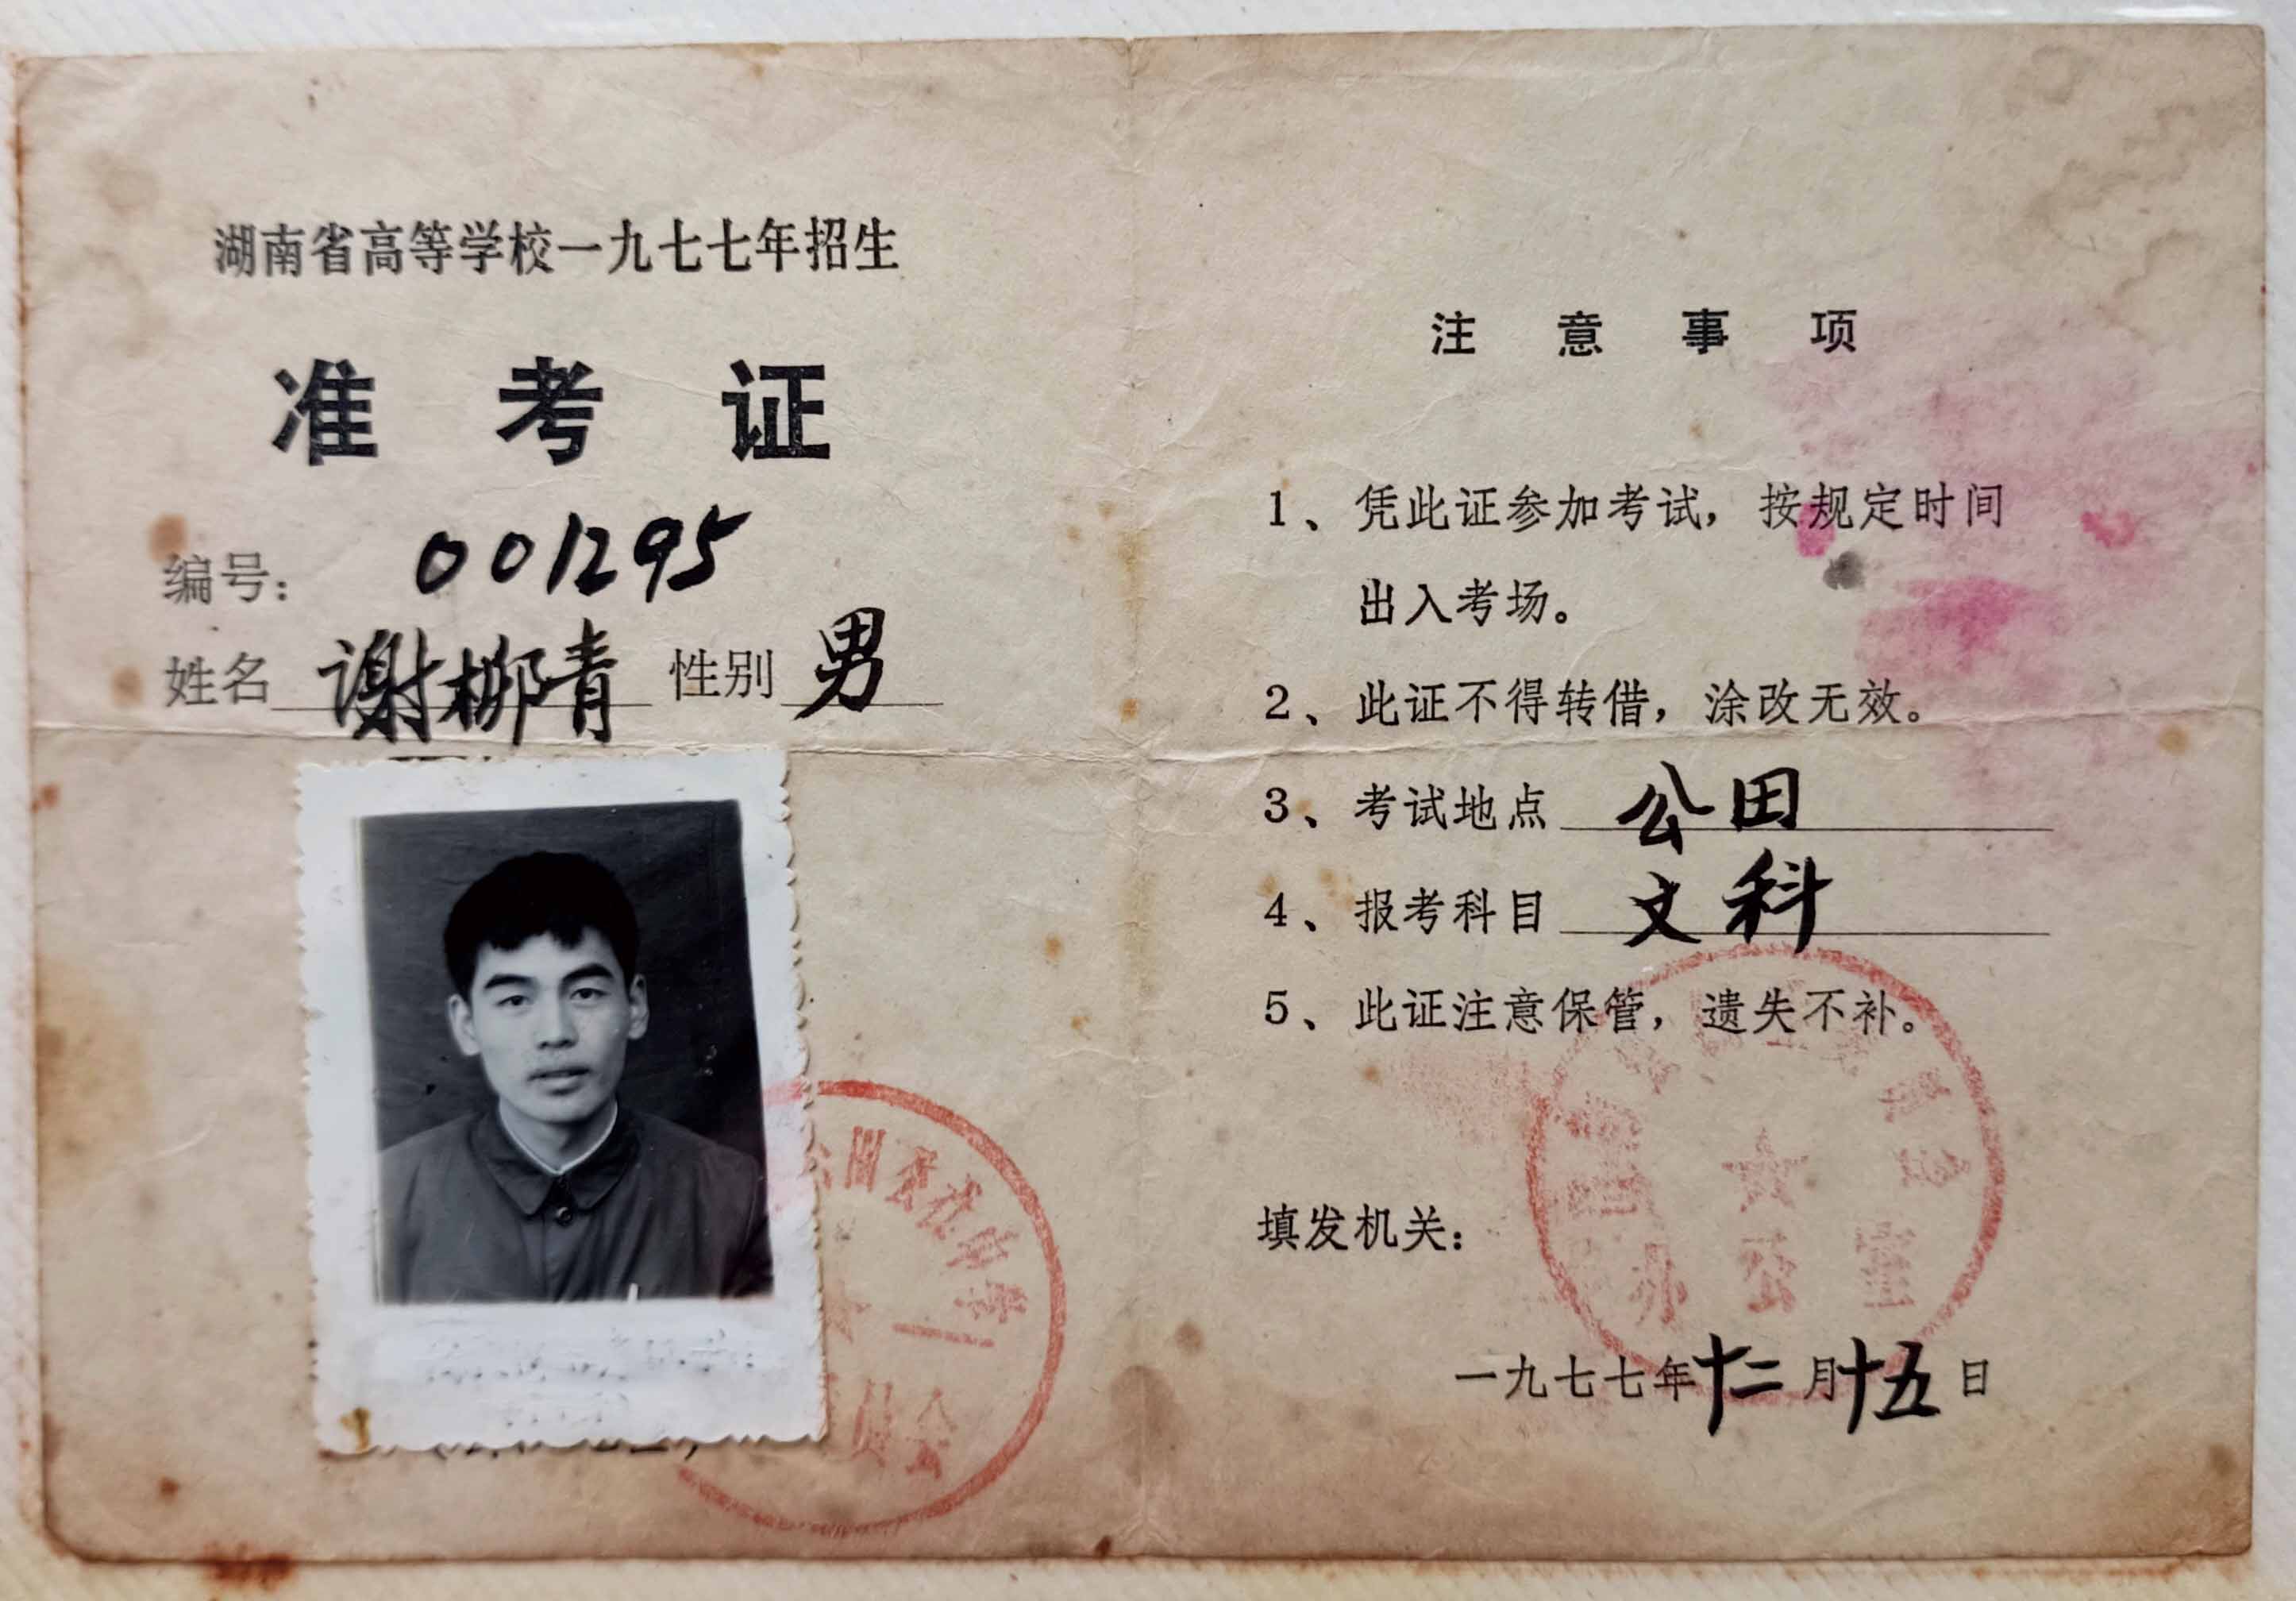 湖南省高等学校一九七七年招生
准考证
编号： 001295
姓名 谢柳青 性别 男
公田公社中学
员会
注意事项
1、凭此证参加考试，按规定时间
出入考场。
2、此证不得转借，涂改无效。
3、考试地点 公田
4、报考科目 文科
5、此证注意保管，遗失不补。
填发机关：
办公室
一九七七年十二月十五日